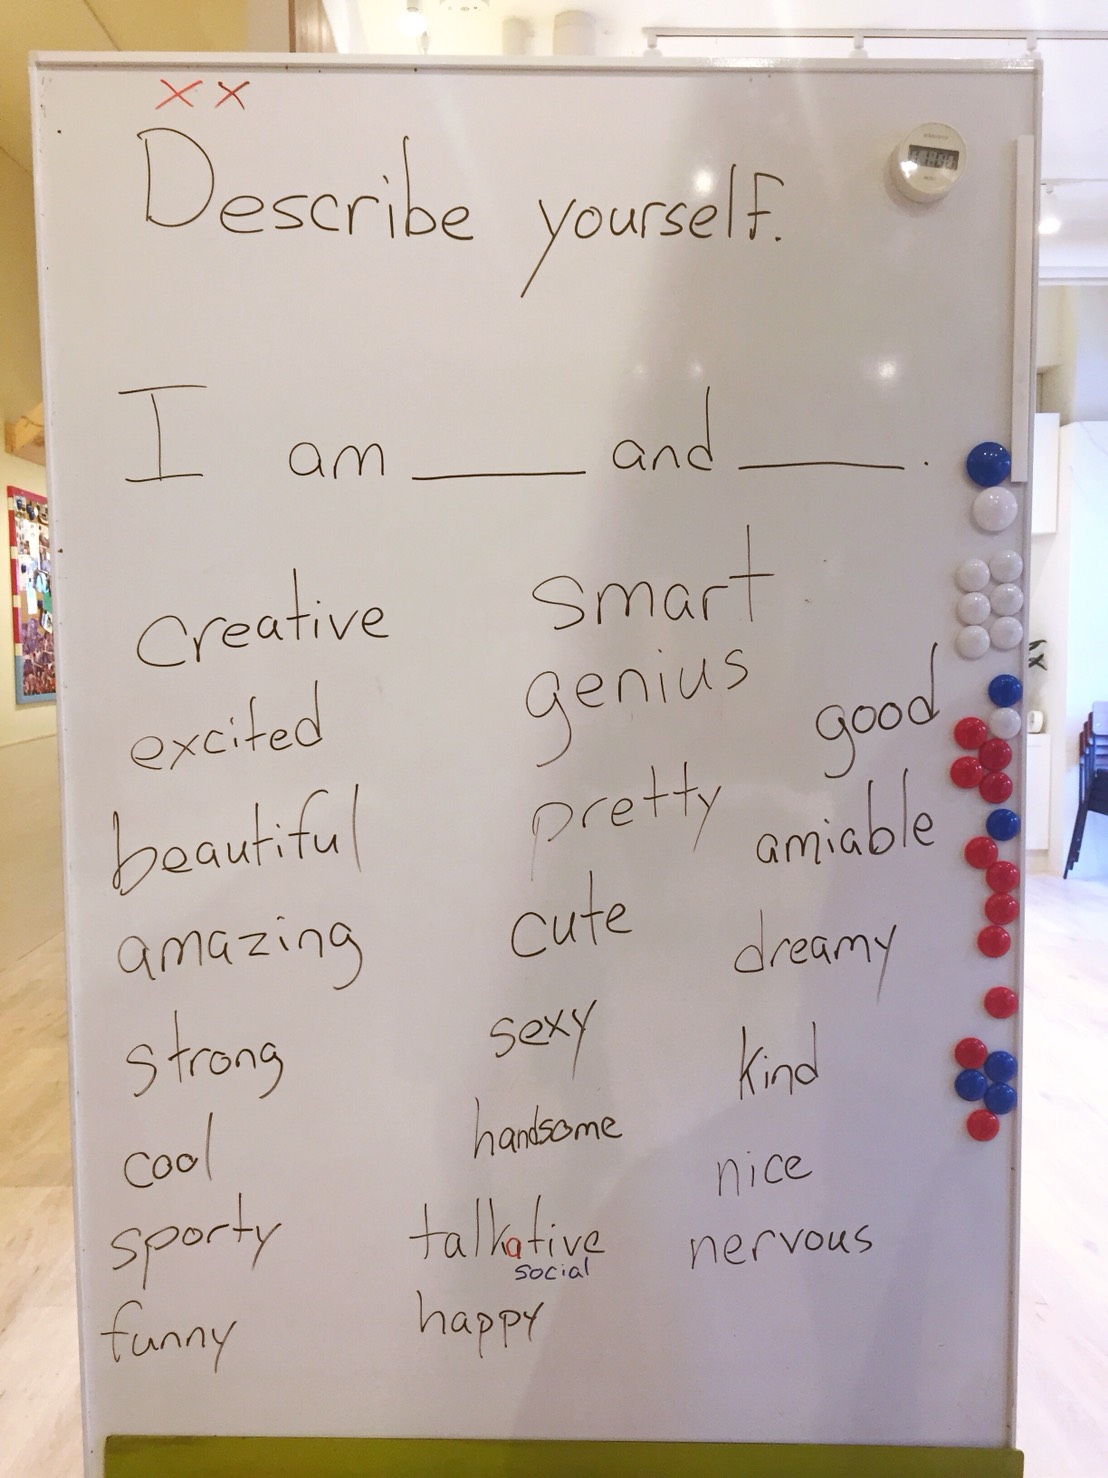 X X
Describe yourself.
I am ____ and ____.
creative
excited
beautiful
amazing
strong
cool
sporty
funny
smart
genius
pretty
cute
sexy
handsome
talkative
social
happy
good
amiable
dreamy
kind
nice
nervous